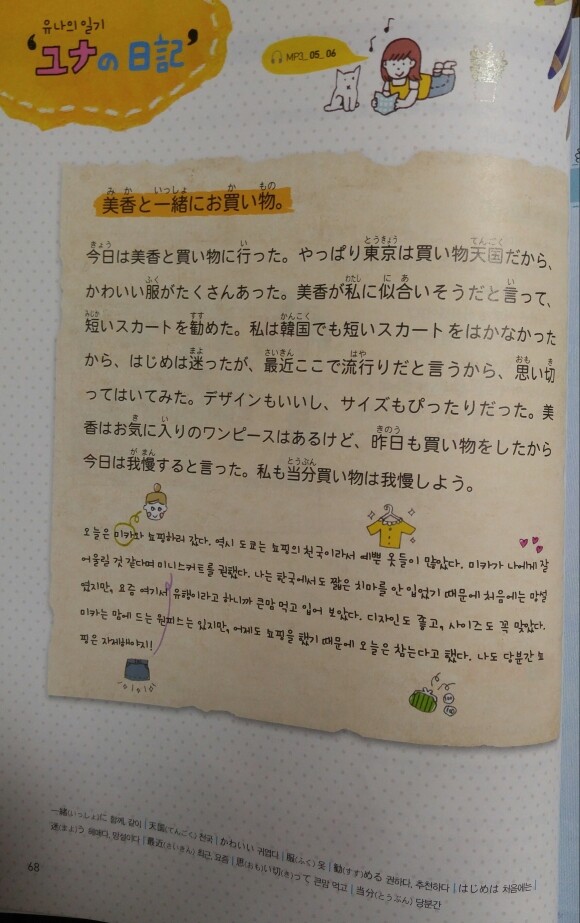 유나의 일기
'ユナの 日記'
MP3_05_06
美香と一緒にお買い物。
今日は美香と買い物に行った。やっぱり東京は買い物天国だから、
かわいい服がたくさんあった。美香が私に似合いそうだと言って、
短いスカートを勧めた。私は韓国でも短いスカートをはかなかった
から、はじめは迷ったが、最近ここで流行りだと言うから、思い切
ってはいてみた。デザインもいいし、サイズもぴったりだった。美
香はお気に入りのワンピースはあるけど、昨日も買い物をしたから
今日は我慢すると言った。私も当分買い物は我慢しよう。
오늘은 미카와 쇼핑하러 갔다. 역시 도쿄는 쇼핑의 천국이라서 예쁜 옷들이 많았다. 미카가 나에게 잘
어울릴 것 같다며 미니스커트를 권했다. 나는 한국에서도 짧은 치마를 안 입었기 때문에 처음에는 망설
였지만, 요즘 여기서 유행이라고 하니까 큰맘 먹고 입어 보았다. 디자인도 좋고, 사이즈도 꼭 맞았다.
미카는 맘에 드는 원피스는 있지만, 어제도 쇼핑을 했기 때문에 오늘은 참는다고 했다. 나도 당분간 쇼
핑은 자제해야지!
一緒(いっしょ)に 함께, 같이 | 天国(てんごく) 천국 | かわいい 귀엽다 | 服(ふく) 옷 | 勧(すす)める 권하다, 추천하다 | はじめは 처음에는 |
迷(まよ)う 헤매다, 망설이다 | 最近(さいきん) 최근, 요즘 | 思(おも)い切(き)って 큰맘 먹고 | 当分(とうぶん) 당분간
68